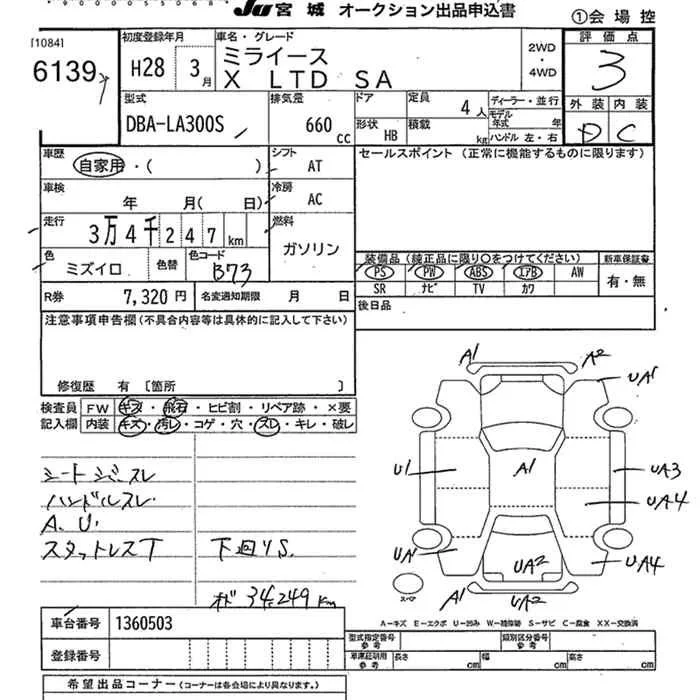 JU 宮城 オークション出品申込書
①会場控
[1084]
6139
初度登録年月
H28 3月
車名・グレード
ミライース
X LTD SA
2WD
・
4WD
評価点
3
外装 内装
D C
型式
DBA-LA300S
排気量
660 cc
ドア
形状 HB
定員 4人
積載 kg
ディーラー・並行
モデル年式 年
ハンドル 左・右
車歴
自家用・( )
シフト AT
車検
年 月( 日)
冷房 AC
走行
3万4千247km
燃料
ガソリン
色
ミズイロ
色替
色コード
B73
R券 7,320円
名変通知期限 月 日
セールスポイント (正常に機能するものに限ります)
装備品 (純正品に限り○をつけてください)
PS PW ABS エアB AW
SR ナビ TV カワ
新車保証書
有・無
後日品
注意事項申告欄(不具合内容等は具体的に記入して下さい)
修復歴 有 〔箇所 〕
検査員記入欄
FW キズ・飛石・ヒビ割・リペア跡・×要
内装 キズ・汚レ・コゲ・穴・スレ・キレ・破レ
ハンドルスレ
A、U
スタットレスT
下廻りS
オド 34,249km
A1 A2
UA1
U1
A1
UA3
UA4
UA1
UA2
UA4
A1
UA2
スペア
A-キズ E-エクボ U-凹み W-補修跡 S-サビ C-腐食 XX-交換済
車台番号 1360503
登録番号
型式指定番号 参考
類別区分番号 参考
車庫証明用 参考
長さ cm
幅 cm
高さ cm
希望出品コーナー(コーナーは各会場により異なります。)